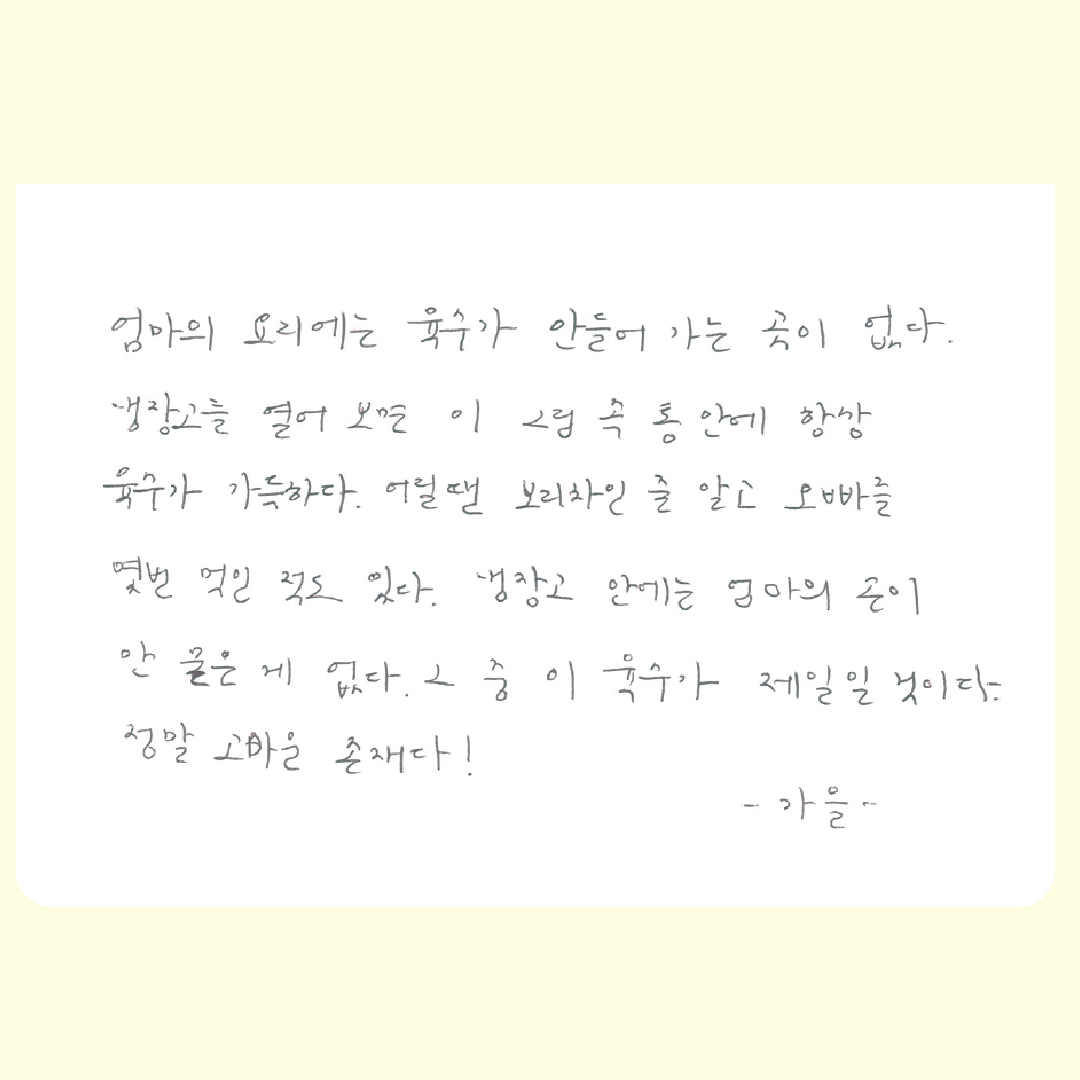 엄마의 요리에는 육수가 안들어 가는 곳이 없다.
냉장고를 열어 보면 이 그림 속 통 안에 항상
육수가 가득하다. 어릴땐 보리차인 줄 알고 오빠를
몇번 먹인 적도 있다. 냉장고 안에는 엄마의 손이
안 묻은 게 없다. 그 중 이 육수가 제일일 것이다.
정말 고마운 존재다!
- 가을 -